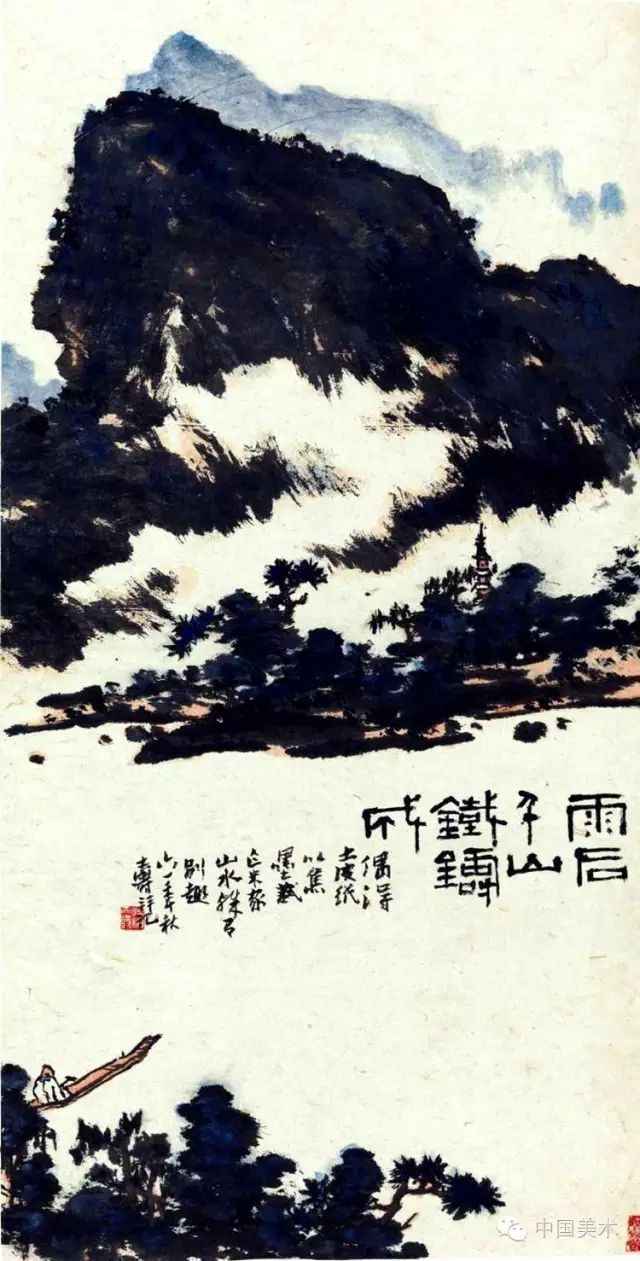 雨后
千山
鐵鑄
成
偶得
土皮紙
以焦
墨
米家
山水殊有
别趣
六一年秋
壽
中国美术